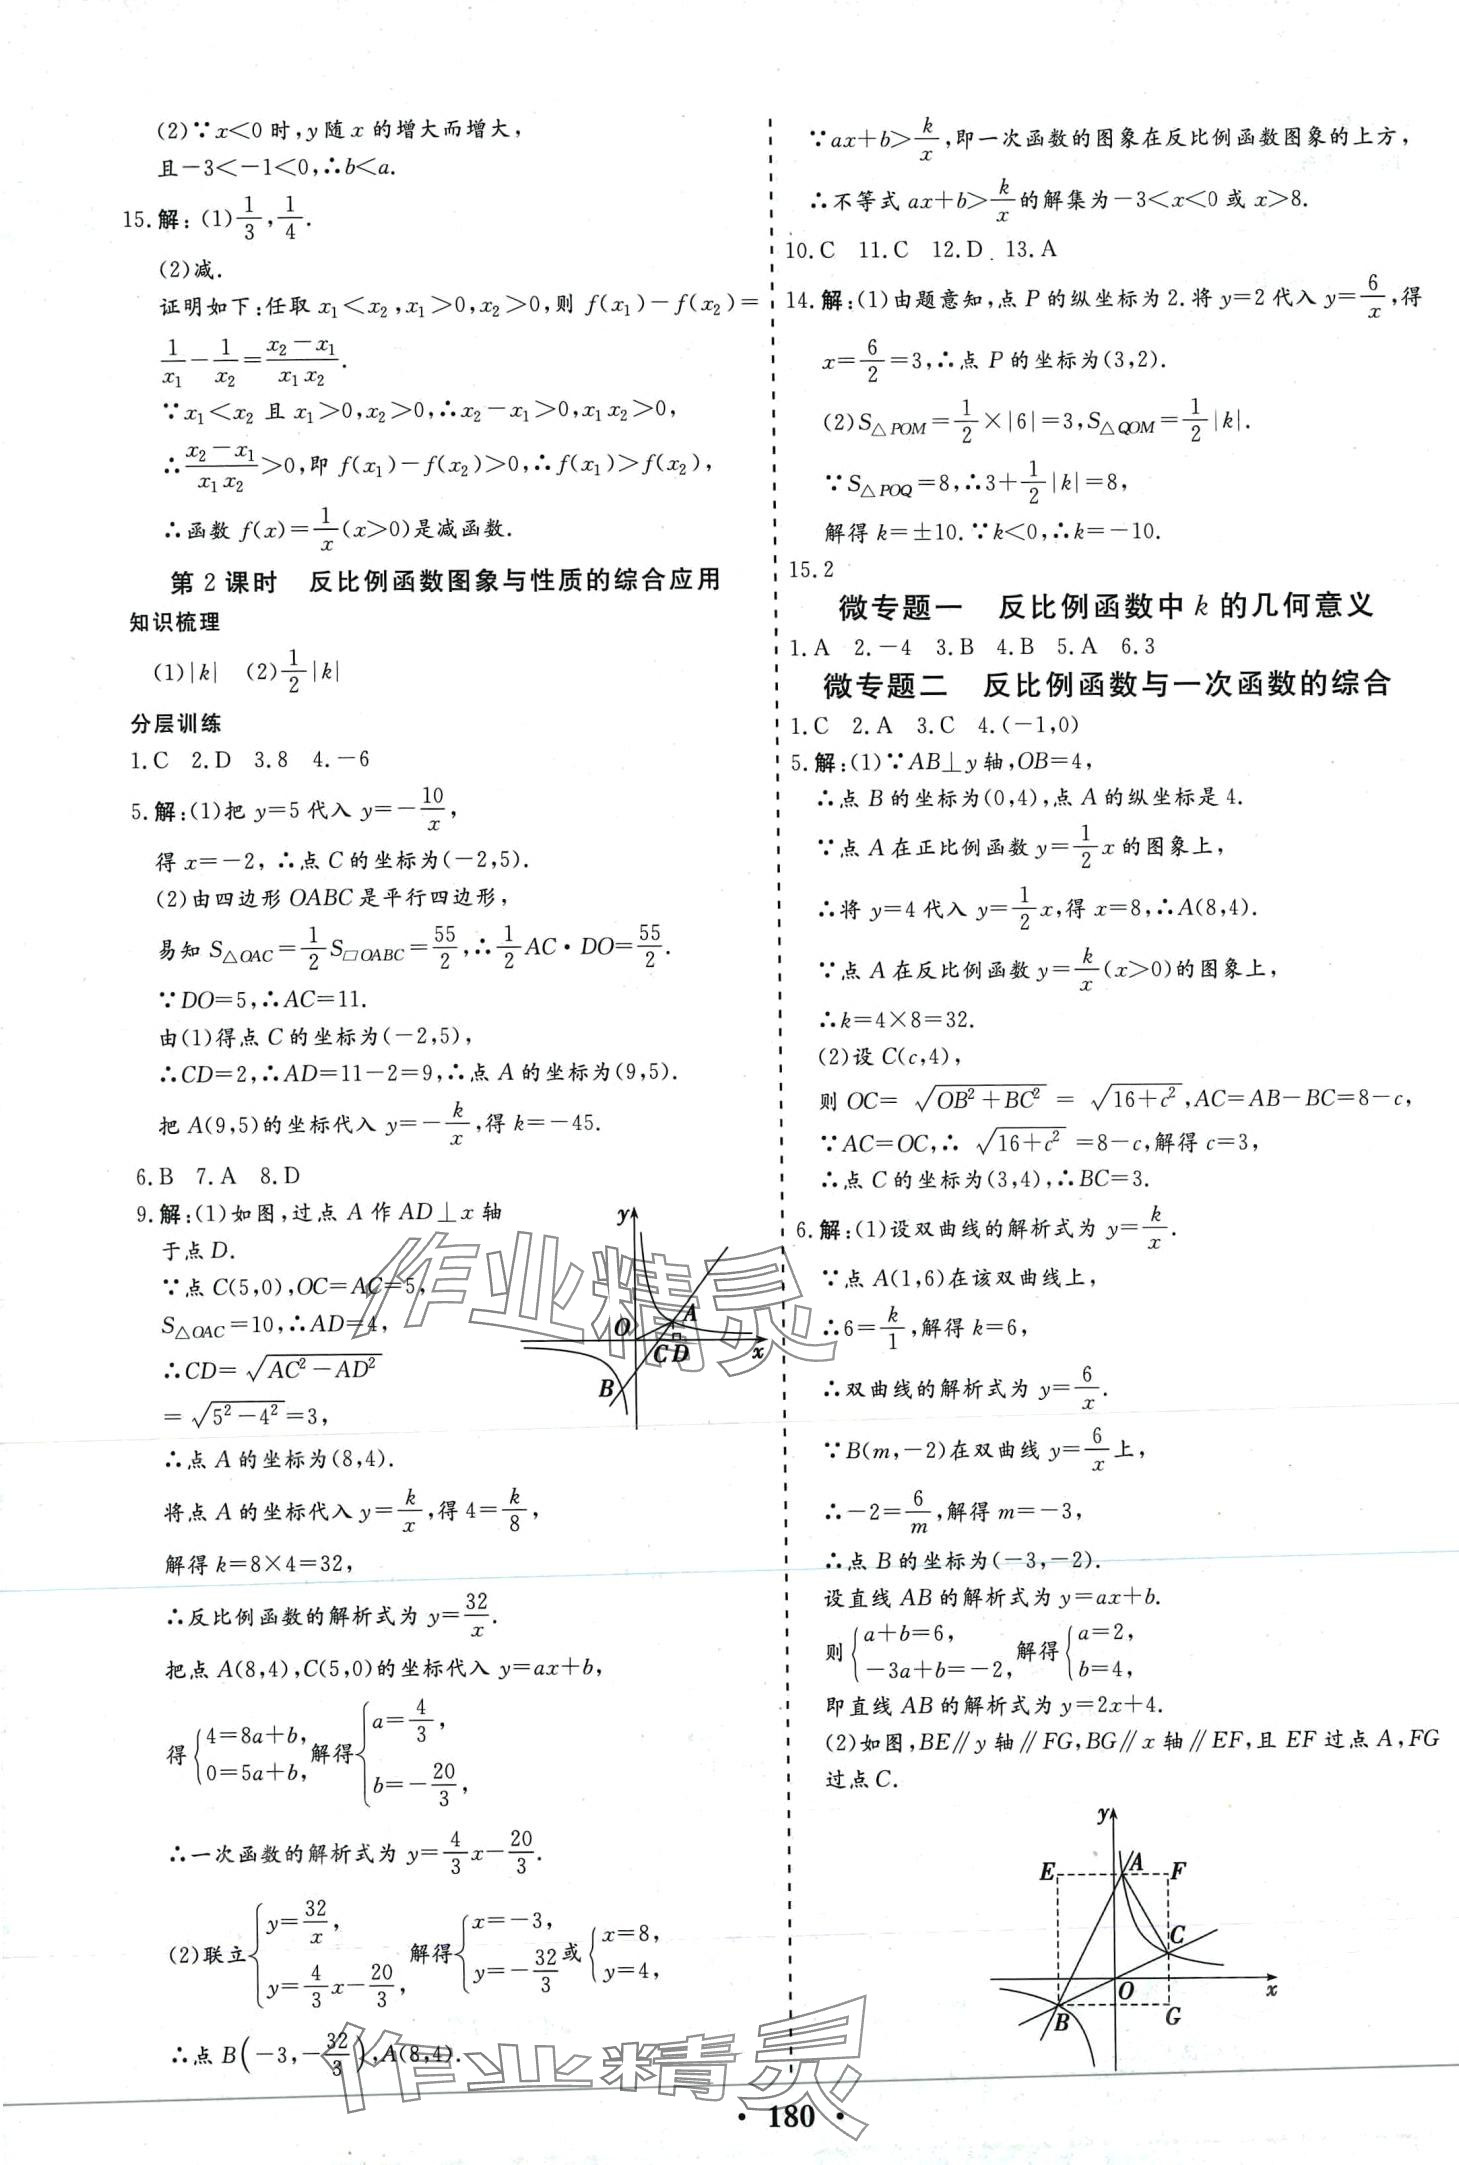 (2)∵x<0时,y随x的增大而增大,
且-3<-1<0,∴b<a.
15.解:(1)1/3,1/4.
(2)减.
证明如下:任取x₁<x₂,x₁>0,x₂>0,则f(x₁)-f(x₂)=
1/x₁-1/x₂=(x₂-x₁)/(x₁x₂).
∵x₁<x₂且x₁>0,x₂>0,∴x₂-x₁>0,x₁x₂>0,
∴(x₂-x₁)/(x₁x₂)>0,即f(x₁)-f(x₂)>0,∴f(x₁)>f(x₂),
∴函数f(x)=1/x(x>0)是减函数.
第2课时 反比例函数图象与性质的综合应用
知识梳理
(1)|k| (2)1/2|k|
分层训练
1.C 2.D 3.8 4.-6
5.解:(1)把y=5代入y=-10/x,
得x=-2,∴点C的坐标为(-2,5).
(2)由四边形OABC是平行四边形,
易知S△OAC=1/2S□OABC=55/2,∴1/2AC·DO=55/2.
∵DO=5,∴AC=11.
由(1)得点C的坐标为(-2,5),
∴CD=2,∴AD=11-2=9,∴点A的坐标为(9,5).
把A(9,5)的坐标代入y=-k/x,得k=-45.
6.B 7.A 8.D
9.解:(1)如图,过点A作AD⊥x轴
于点D.
∵点C(5,0),OC=AC=5,
S△OAC=10,∴AD=4,
∴CD=√(AC²-AD²)
=√(5²-4²)=3,
y
O
A
C D
x
B
∴点A的坐标为(8,4).
将点A的坐标代入y=k/x,得4=k/8,
解得k=8×4=32,
∴反比例函数的解析式为y=32/x.
把点A(8,4),C(5,0)的坐标代入y=ax+b,
得{4=8a+b, 0=5a+b, 解得{a=4/3, b=-20/3,
∴一次函数的解析式为y=4/3x-20/3.
(2)联立{y=32/x, y=4/3x-20/3, 解得{x=-3, y=-32/3 或{x=8, y=4,
∴点B(-3,-32/3),A(8,4).
∵ax+b>k/x,即一次函数的图象在反比例函数图象的上方,
∴不等式ax+b>k/x的解集为-3<x<0或x>8.
10.C 11.C 12.D 13.A
14.解:(1)由题意知,点P的纵坐标为2.将y=2代入y=6/x,得
x=6/2=3,∴点P的坐标为(3,2).
(2)S△POM=1/2×|6|=3,S△QOM=1/2|k|.
∵S△POQ=8,∴3+1/2|k|=8,
解得k=±10.∵k<0,∴k=-10.
15.2
微专题一 反比例函数中k的几何意义
1.A 2.-4 3.B 4.B 5.A 6.3
微专题二 反比例函数与一次函数的综合
1.C 2.A 3.C 4.(-1,0)
5.解:(1)∵AB⊥y轴,OB=4,
∴点B的坐标为(0,4),点A的纵坐标是4.
∵点A在正比例函数y=1/2x的图象上,
∴将y=4代入y=1/2x,得x=8,∴A(8,4).
∵点A在反比例函数y=k/x(x>0)的图象上,
∴k=4×8=32.
(2)设C(c,4),
则OC=√(OB²+BC²)=√(16+c²),AC=AB-BC=8-c,
∵AC=OC,∴√(16+c²)=8-c,解得c=3,
∴点C的坐标为(3,4),∴BC=3.
6.解:(1)设双曲线的解析式为y=k/x.
∵点A(1,6)在该双曲线上,
∴6=k/1,解得k=6,
∴双曲线的解析式为y=6/x.
∵B(m,-2)在双曲线y=6/x上,
∴-2=6/m,解得m=-3,
∴点B的坐标为(-3,-2).
设直线AB的解析式为y=ax+b.
则{a+b=6, -3a+b=-2, 解得{a=2, b=4,
即直线AB的解析式为y=2x+4.
(2)如图,BE∥y轴∥FG,BG∥x轴∥EF,且EF过点A,FG
过点C.
y
E A F
C
O x
B G
·180·
作业精灵
作业精灵